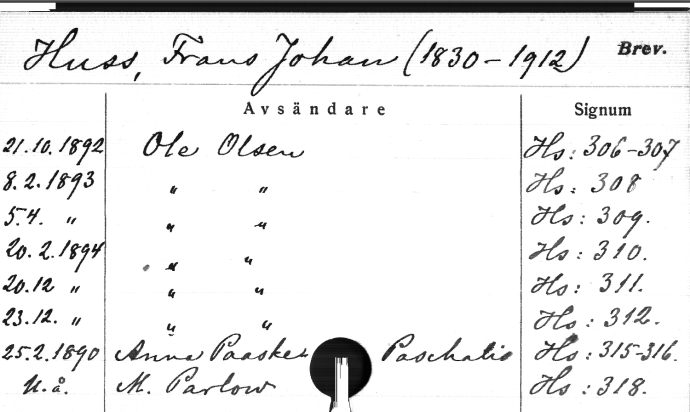 Huss, Frans Johan (1830-1912) Brev.
Avsändare Signum
21.10.1892 Ole Olsen Hs: 306-307
8.2.1893 " " Hs: 308
5.4. " " " Hs: 309.
20.2.1894 " " Hs: 310.
20.12 " " " Hs: 311.
23.12. " " " Hs: 312.
25.2.1890 Anna Paaske Paschalis Hs: 315-316.
U.å. M. Parlow Hs: 318.